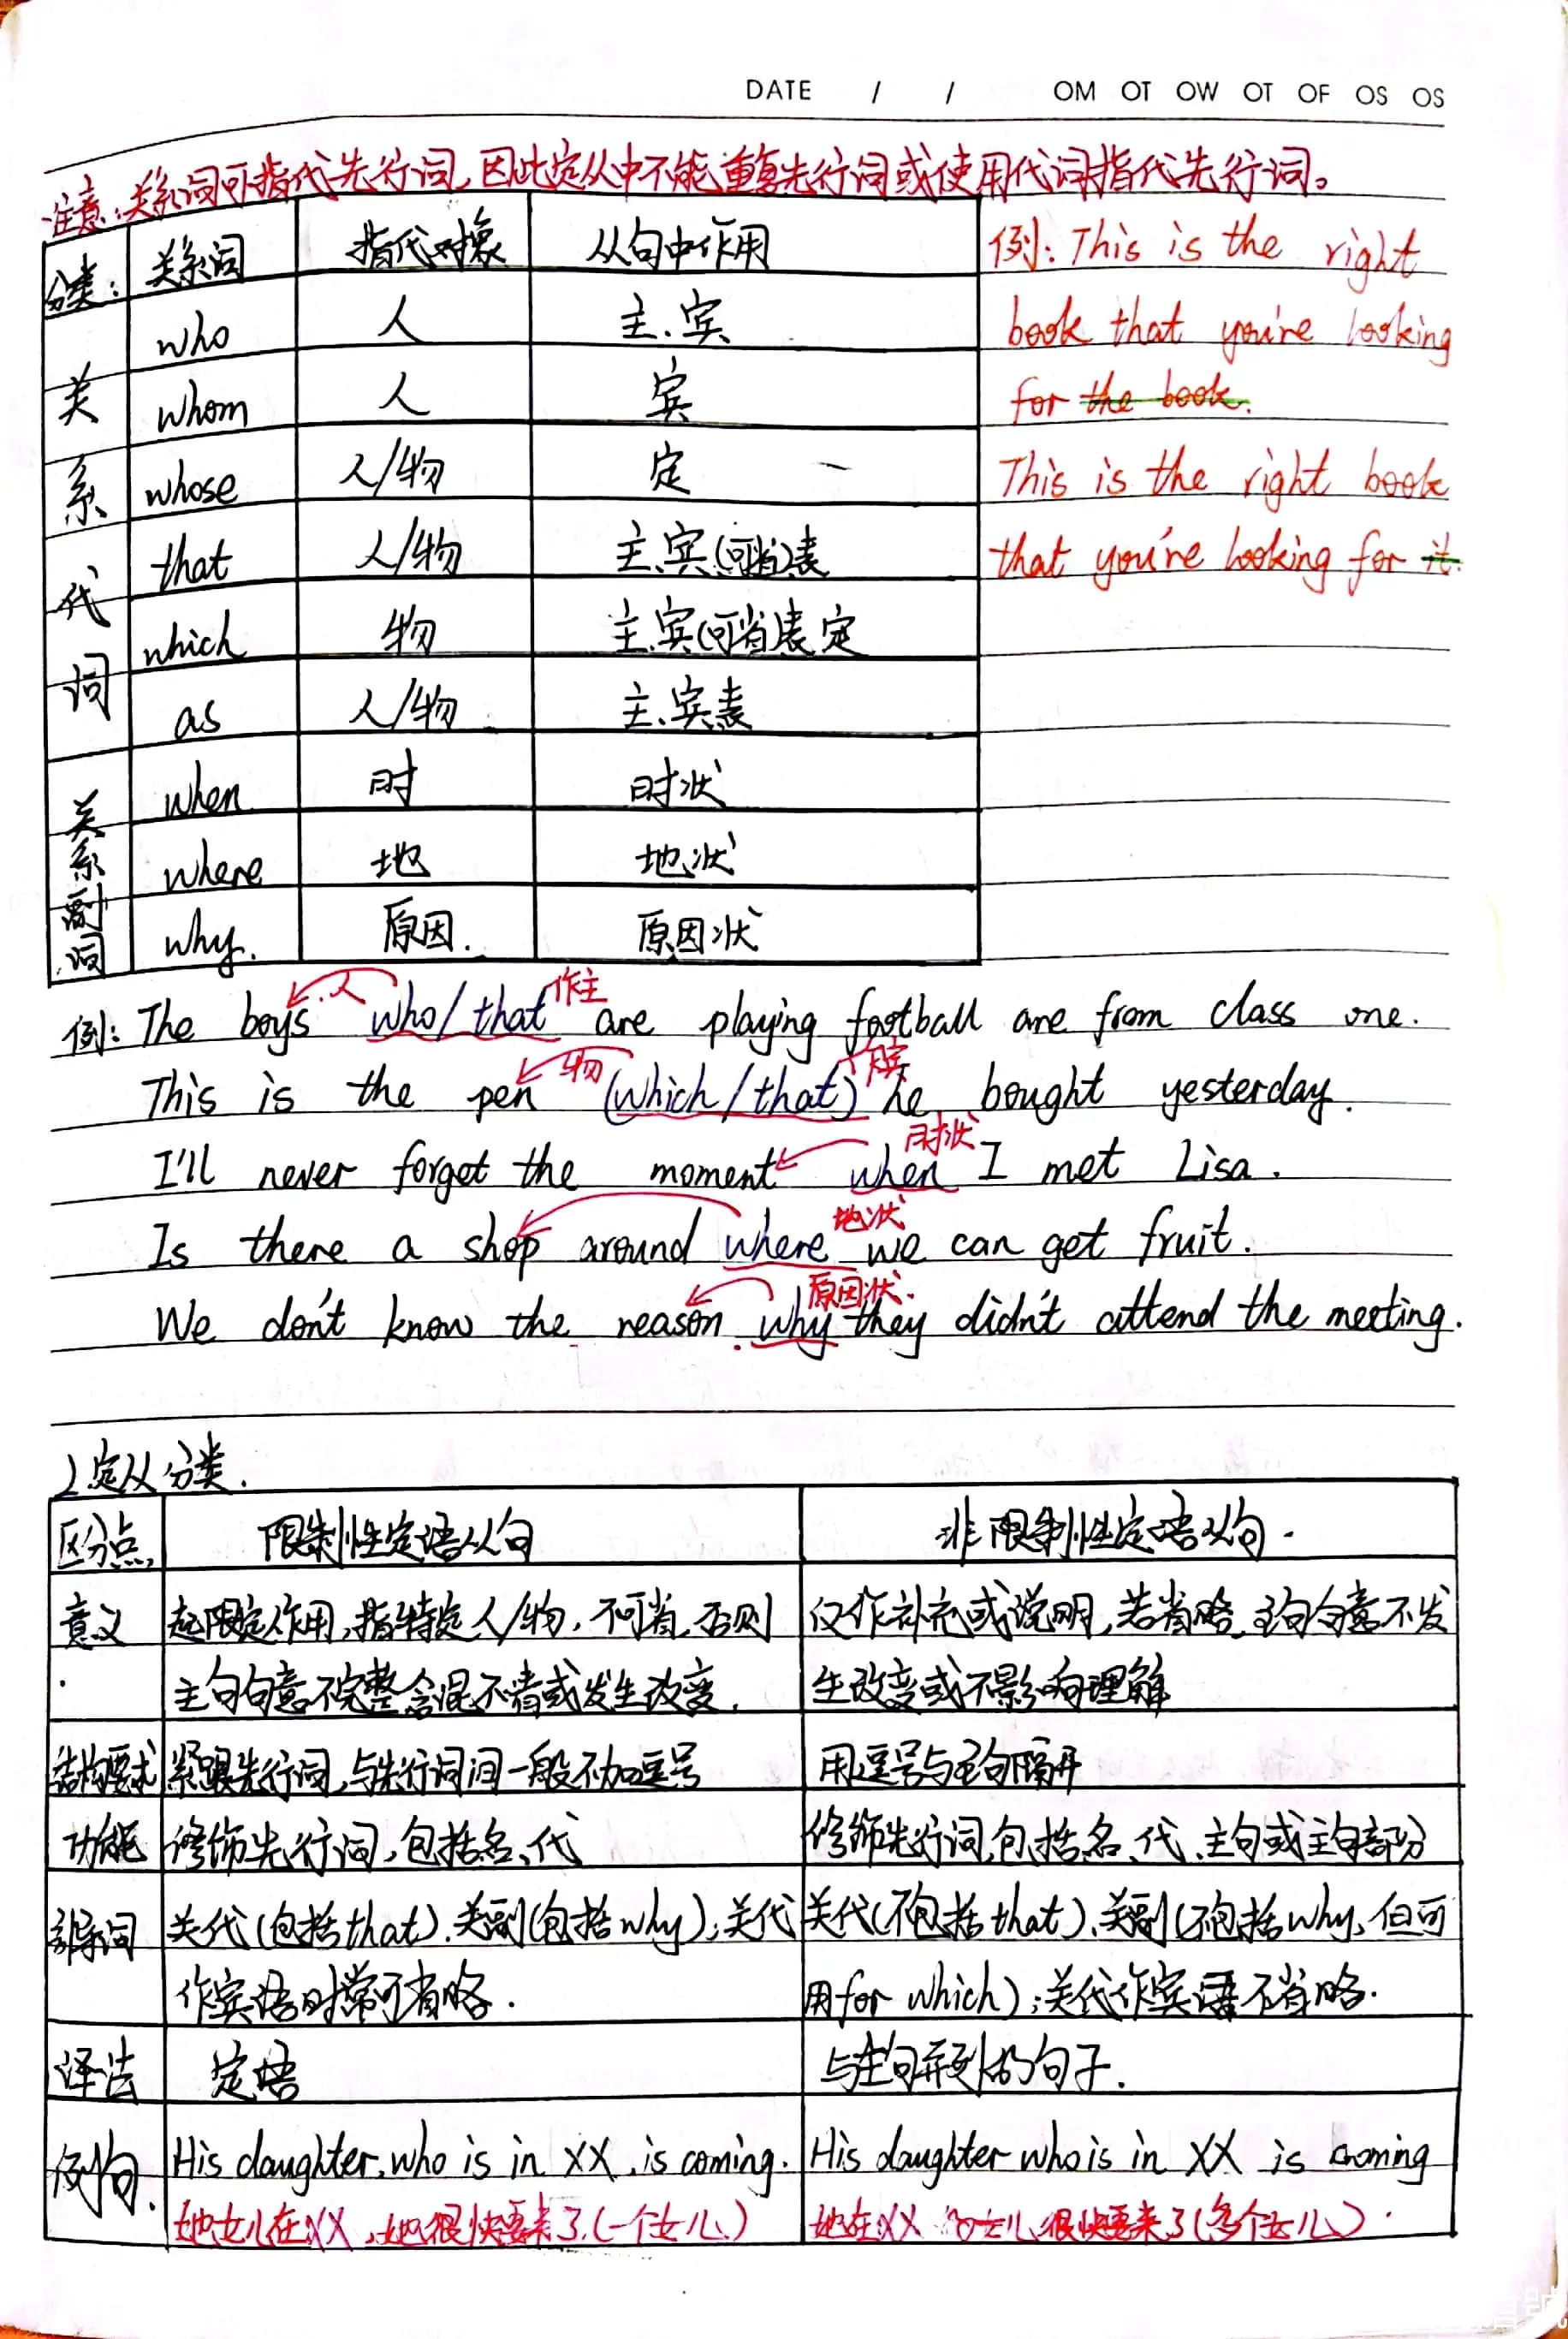 DATE / / OM OT OW OT OF OS OS
注意:关系词可指代先行词,因此定从中不能重复先行词或使用代词指代先行词。
分类: 关系词 指代对象 从句中作用
关系代词
who 人 主.宾
whom 人 宾
whose 人/物 定
that 人/物 主.宾(可省)表
which 物 主.宾(可省)表 定
as 人/物 主.宾表
关系副词
when 时 时状
where 地 地状
why. 原因. 原因状
例: This is the right
book that you're looking
for the book.
This is the right book
that you're looking for it.
人 作主
例: The boys who/that are playing football are from class one.
物 作宾
This is the pen (which/that) he bought yesterday.
时状
I'll never forget the moment when I met Lisa.
地状
Is there a shop around where we can get fruit.
原因状.
We don't know the reason why they didn't attend the meeting.
2.定从分类.
区分点 限制性定语从句 非限制性定语从句.
意义 起限定作用,指特定人/物,不可省,否则 仅作补充或说明,若省略,主句句意不发
主句句意不完整含混不清或发生改变. 生改变或不影响理解
结构要求 紧跟先行词,与先行词间一般不加逗号 用逗号与主句隔开
功能 修饰先行词,包括名、代 修饰先行词,包括名、代、主句或主句部分
引导词 关代(包括that).关副(包括why);关代 关代(不包括that).关副(不包括why,但可
作宾语时常可省略. 用for which);关代作宾语不省略.
译法 定语 与主句并列的句子.
例句. His daughter,who is in XX,is coming. His daughter who is in XX is coming
她女儿在XX,她很快要来了(一个女儿) 她在XX的女儿很快要来了(多个女儿).